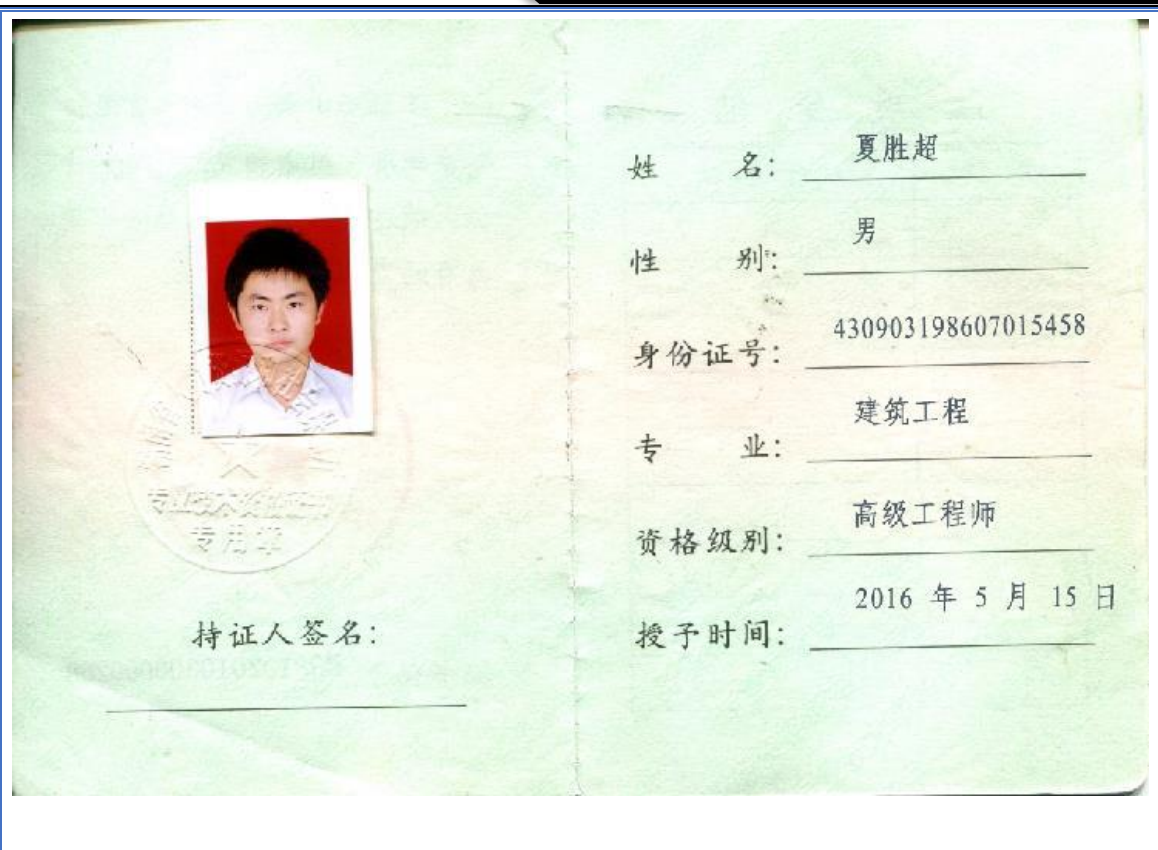 专用章
持证人签名:
姓 名: 夏胜超
性 别: 男
身份证号: 430903198607015458
专 业: 建筑工程
资格级别: 高级工程师
授予时间: 2016 年 5 月 15 日